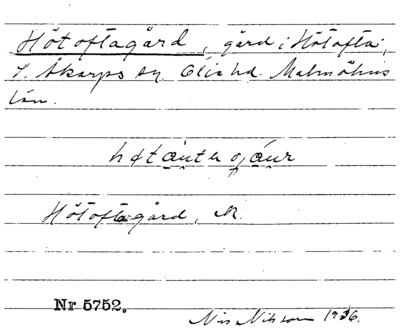 Hötoftagård, gård i Hötofta,
S. Åkarps sn. Oxie hd. Malmöhus
län.
Hötoftagård, M.
Nr 5752.
Nils Nilsson 1936.